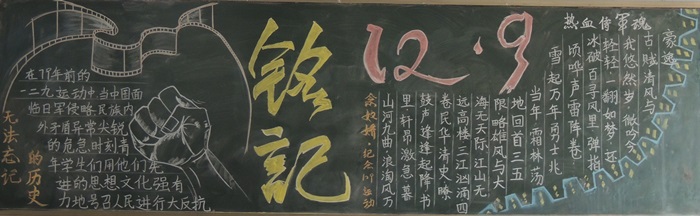 在79年前的
一二九运动中当中国面
临日军侵略民族内
外矛盾异常尖锐
的危急时刻青
年学生们用他们先
进的思想文化强有
力地号召人民进行大反抗
无法忘记
的历史
铭記
12.9
热血传军魂
豪迈
古赋清风与
我悠然岁微吟今
轻轻一翻如梦还
冰破百寻风里弹指
顷哗声雷阵卷
雪起万年勇士兆
当年霜林荡
地回首三五
限略雄风与大
海无天际江山无
远高楼三江汹涌四
卷民华清史暸
鼓声逢逢起降书
里轩昂激急慕
山河九曲浪淘风万
念奴娇·纪念129运动